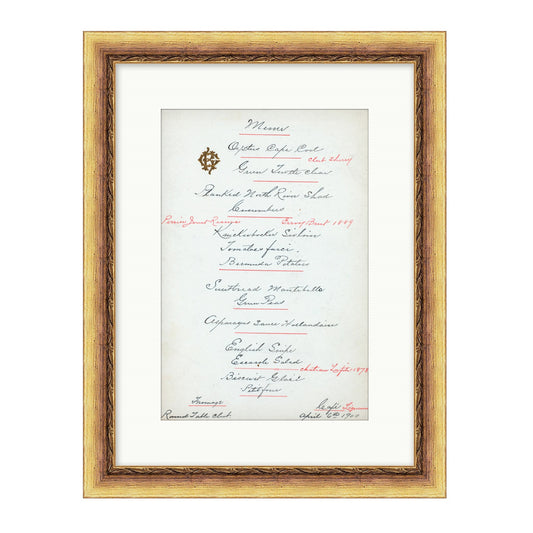 Menu
Oysters Cape Cod
Club Sherry
Green Turtle Clear
Planked North River Shad
Cucumbers
Perrier Jouet Reserve Brut 1889
Knickerbocker Sirloin
Tomatoes farci.
Bermuda Potatoes
Sweetbread Montebello
Green Peas
Asparagus Sauce Hollandaise
English Snipe
Escarole Salad
Chateau Lafite 1878
Biscuit Glacé
Petit four
Fromage
Café
Round Table Club.
April 6th 1900